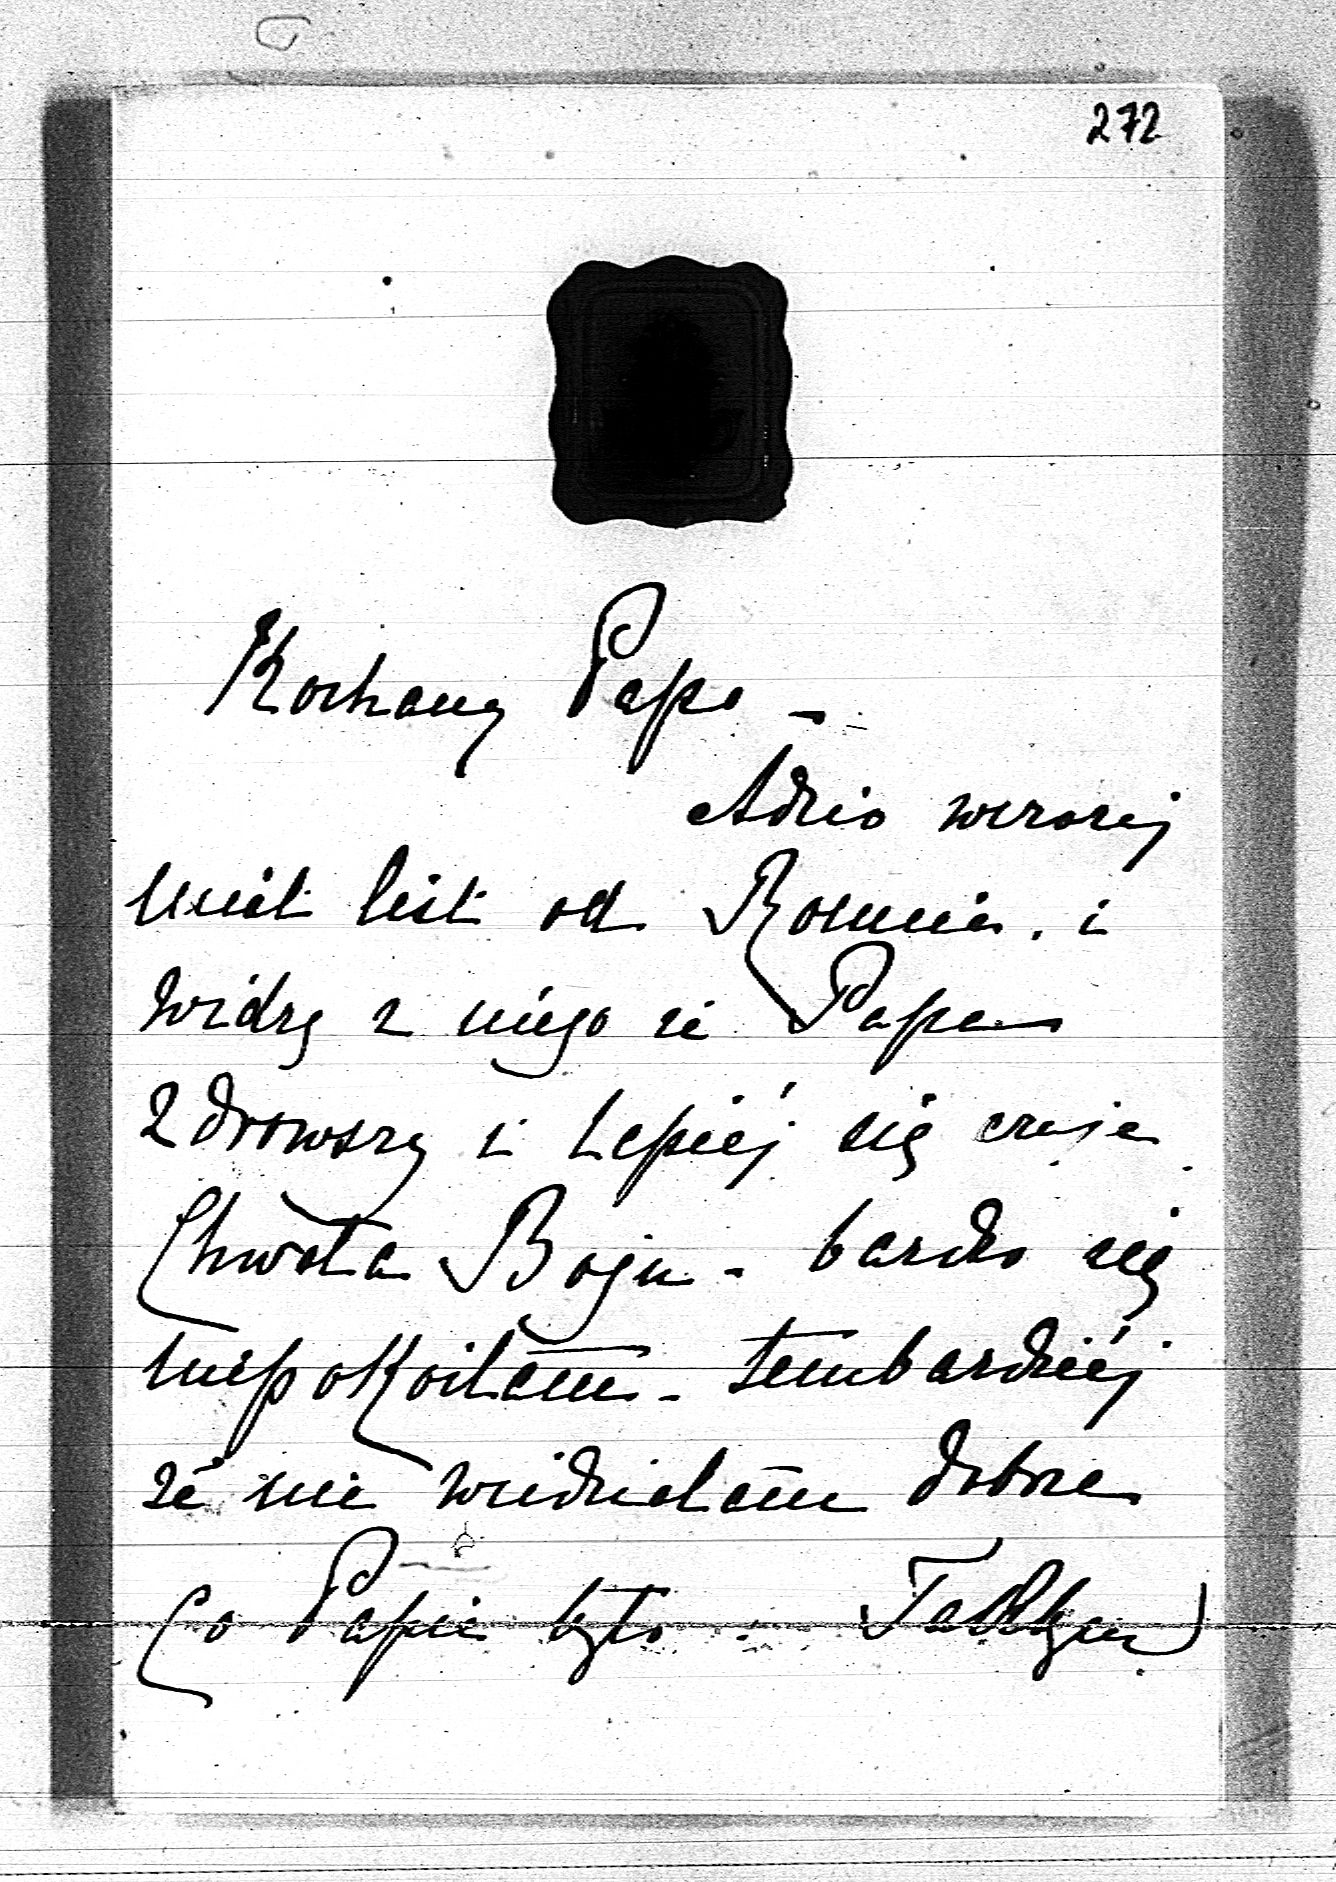 272
Kochany Papo -
Adzio wczoraj
miał list od Romcia. i
widzę z niego że Papa
zdrowszy i lepiéj się czuje
Chwała Bogu - bardzo się
niepokoiłam - tembardziéj
że nie wiedziałam dobrze
Co Papie było. Tak bym